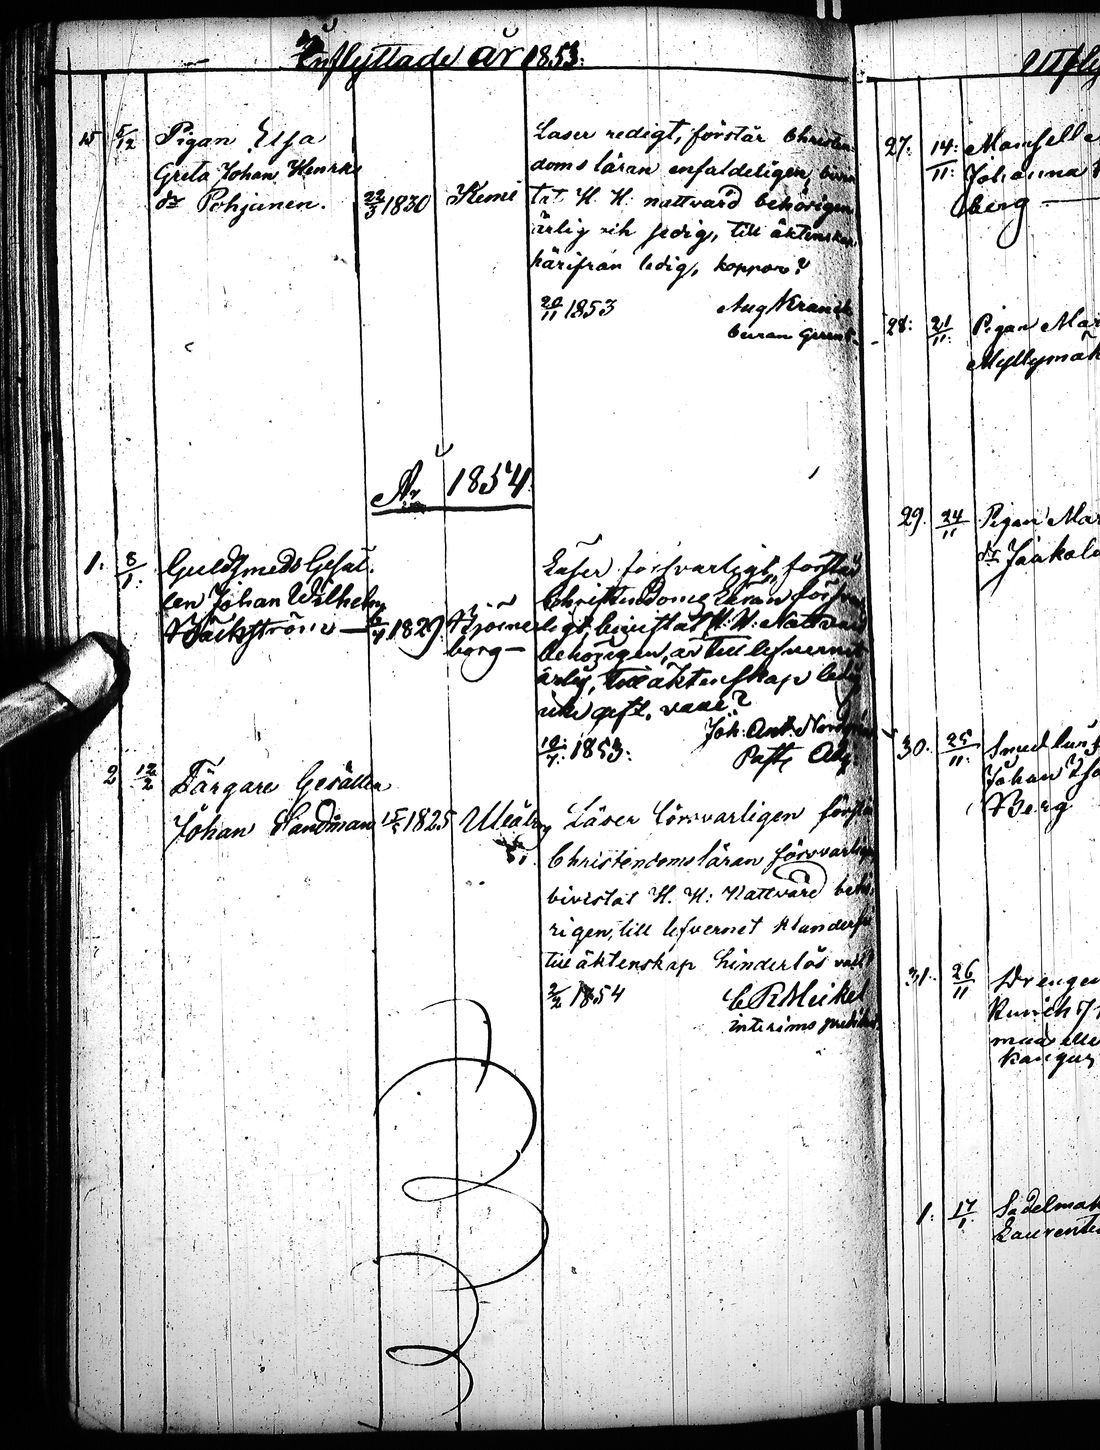 Inflyttade år 1853.
15 5/12 Pigan Elsa
Greta Johan Henriks
dr Pohjanen. 22/3 1830 Kemi
Läser redigt, förstår Christen
doms läran enfaldeligen, bivis
tat H. H. nattvard behörigen
ärlig och sedig, till äktenskap
härifrån ledig, koppor?
20/11 1853 Aug Kranck
År 1854.
1. 8/1. Guldsmeds Gesäl.
len Johan Wilhelm
Bäckström — 6/7 1829 Björne
borg —
Läser försvarligt, förstår
Christendoms Läran försvar
ligt, bevistat H. H. Nattvard
behörigen, är till lefvernet
ärlig, till äktenskap ledig
icke gift, vacc.?
1853. Joh. Ant.
Past. Adj.
2 12/2 Färgare Gesällen
Johan Sandman 15/5 1825 Uleåborg
Läser försvarligen förstår
Christendomsläran försvarligen
bivistat H. H. Nattvard behö
rigen, till lefvernet klanderfri
till äktenskap hinderlös vacc?
2/2 1854 C R Meikel
interims predikant
Utfly
27: 14:/11: Mamsell
Johanna
berg —
28: 21/11: Pigan Mar
Myllymäk
29. 24/11 Pigan Mar
dr Jaakola
30. 25/11: Smeds
Johan
Berg
31. 26/11 Drengen
Kangas
1. 17/1. Sadelmak
Laurentius